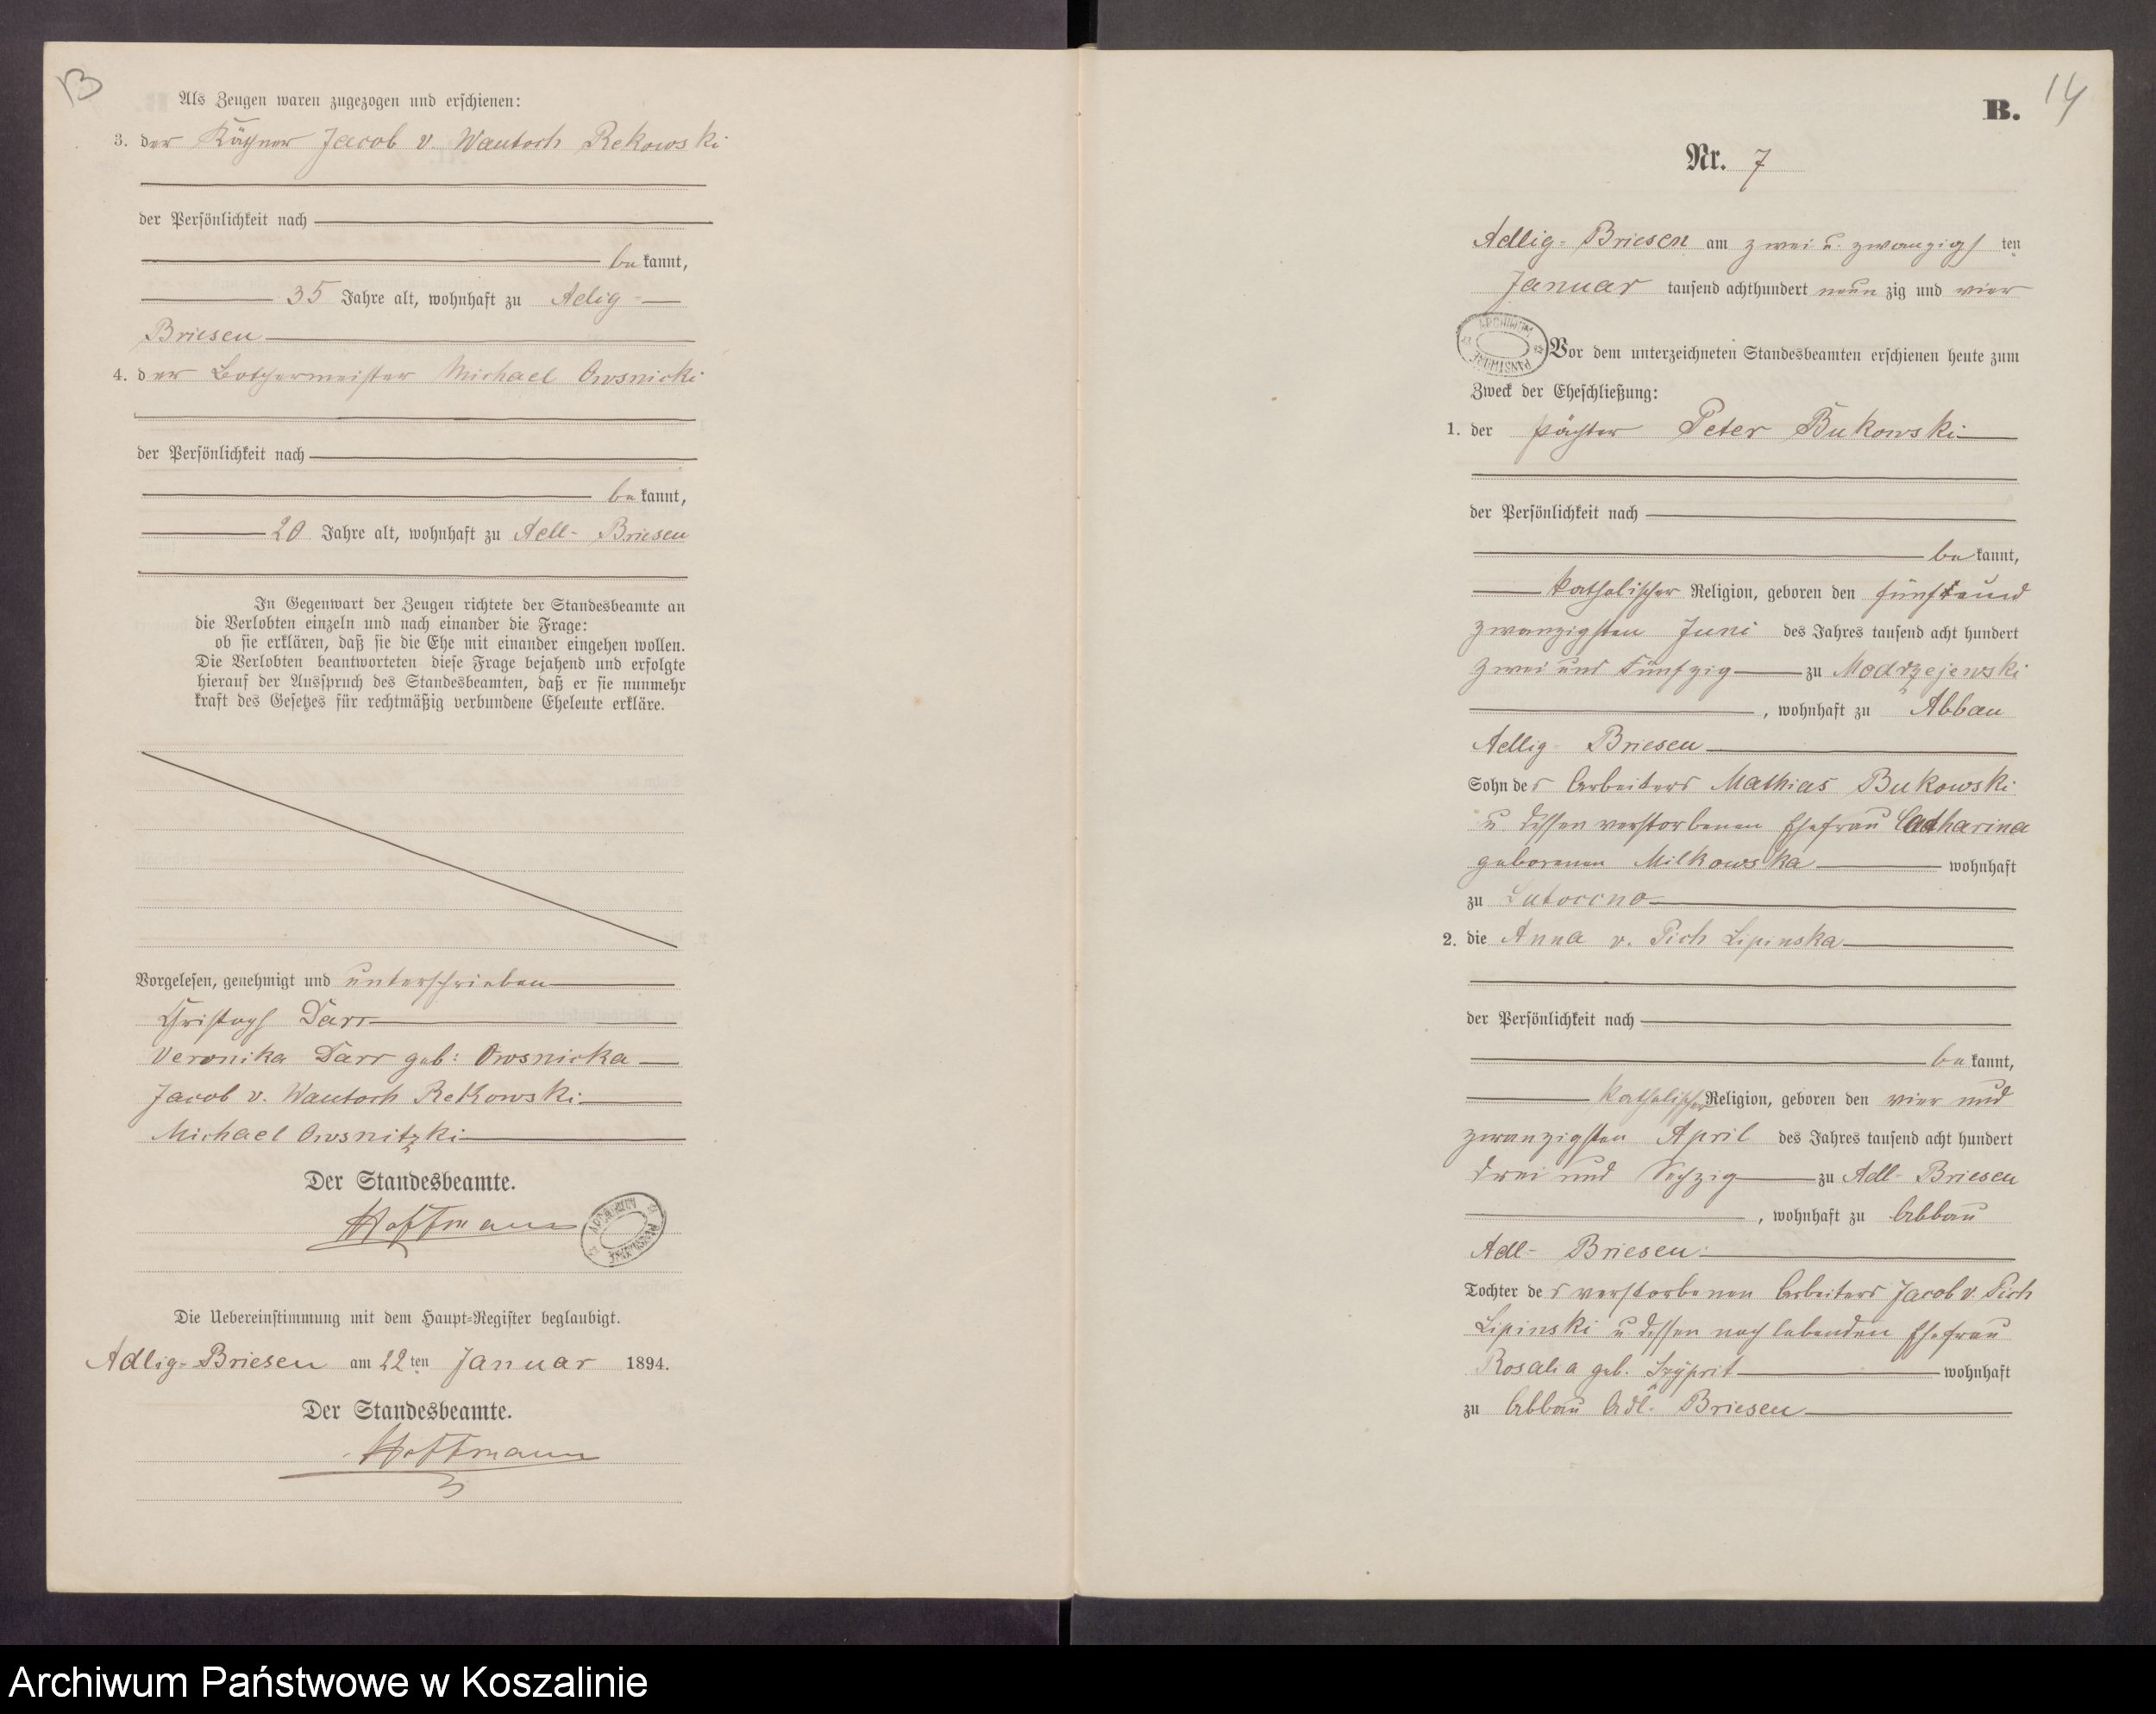 13
Als Zeugen waren zugezogen und erschienen:
3. der Käthner Jacob v. Wantoch Rekowski
der Persönlichkeit nach
be kannt,
35 Jahre alt, wohnhaft zu Adlig-
Briesen
4. der Böttchermeister Michael Owsnicki
der Persönlichkeit nach
be kannt,
20 Jahre alt, wohnhaft zu Adl- Briesen
In Gegenwart der Zeugen richtete der Standesbeamte an
die Verlobten einzeln und nach einander die Frage:
ob sie erklären, daß sie die Ehe mit einander eingehen wollen.
Die Verlobten beantworteten diese Frage bejahend und erfolgte
hierauf der Ausspruch des Standesbeamten, daß er sie nunmehr
kraft des Gesetzes für rechtmäßig verbundene Eheleute erkläre.
Vorgelesen, genehmigt und unterschrieben
Christoph Darr
Veronika Darr geb: Owsnicka
Jacob v. Wantoch Rekowski
Michael Owsnitzki
Der Standesbeamte.
Hoffmann
Die Uebereinstimmung mit dem Haupt-Register beglaubigt.
Adlig-Briesen am 22 ten Januar 1894.
Der Standesbeamte.
Hoffmann
B. 14
Nr. 7
Adlig- Briesen am zwei u. zwanzigs ten
Januar tausend achthundert neun zig und vier
ARCHIWUM PAŃSTWOWE
Vor dem unterzeichneten Standesbeamten erschienen heute zum
Zweck der Eheschließung:
1. der Pächter Peter Bukowski
der Persönlichkeit nach
be kannt,
katholischer Religion, geboren den fünf und
zwanzigsten Juni des Jahres tausend acht hundert
zwei und fünfzig zu Modrzejewski
, wohnhaft zu Abbau
Adlig- Briesen
Sohn des Arbeiters Mathias Bukowski
u. dessen verstorbenen Ehefrau Catharina
geborenen Milkowska wohnhaft
zu
2. die Anna v. Pich Lipinska
der Persönlichkeit nach
be kannt,
katholischer Religion, geboren den vier und
zwanzigsten April des Jahres tausend acht hundert
drei und sechzig zu Adl- Briesen
, wohnhaft zu Abbau
Adl- Briesen
Tochter des verstorbenen Arbeiters Jacob v. Pich
Lipinski u dessen noch lebenden Ehefrau
Rosalia geb. wohnhaft
zu Abbau Adl- Briesen
Archiwum Państwowe w Koszalinie